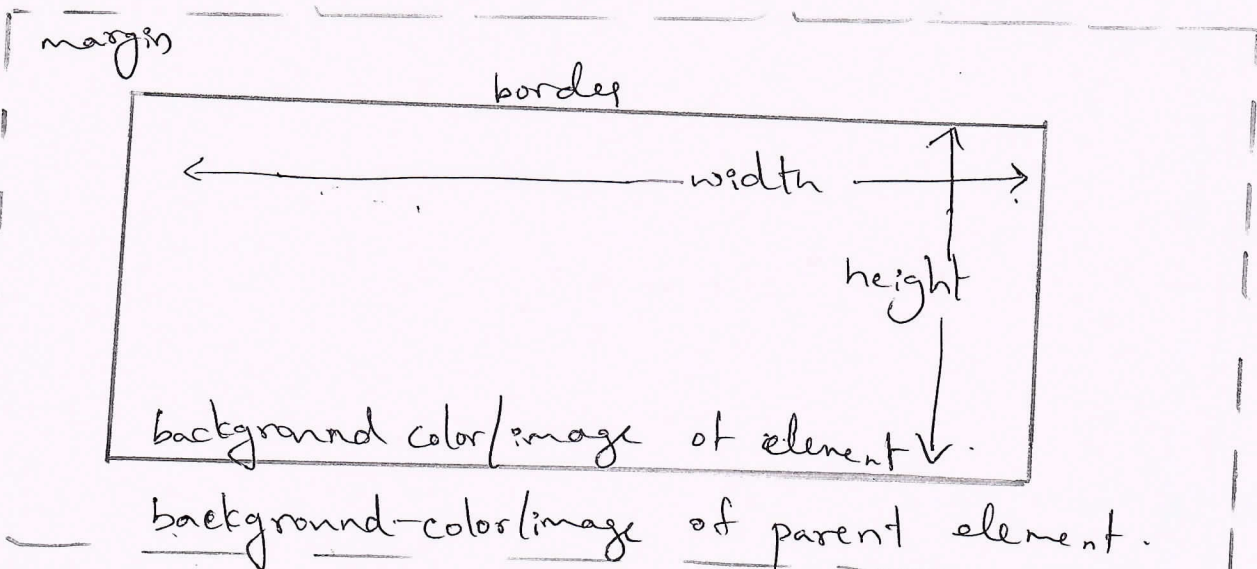 margin
border
width
height
background color/image of element.
background-color/image of parent element.